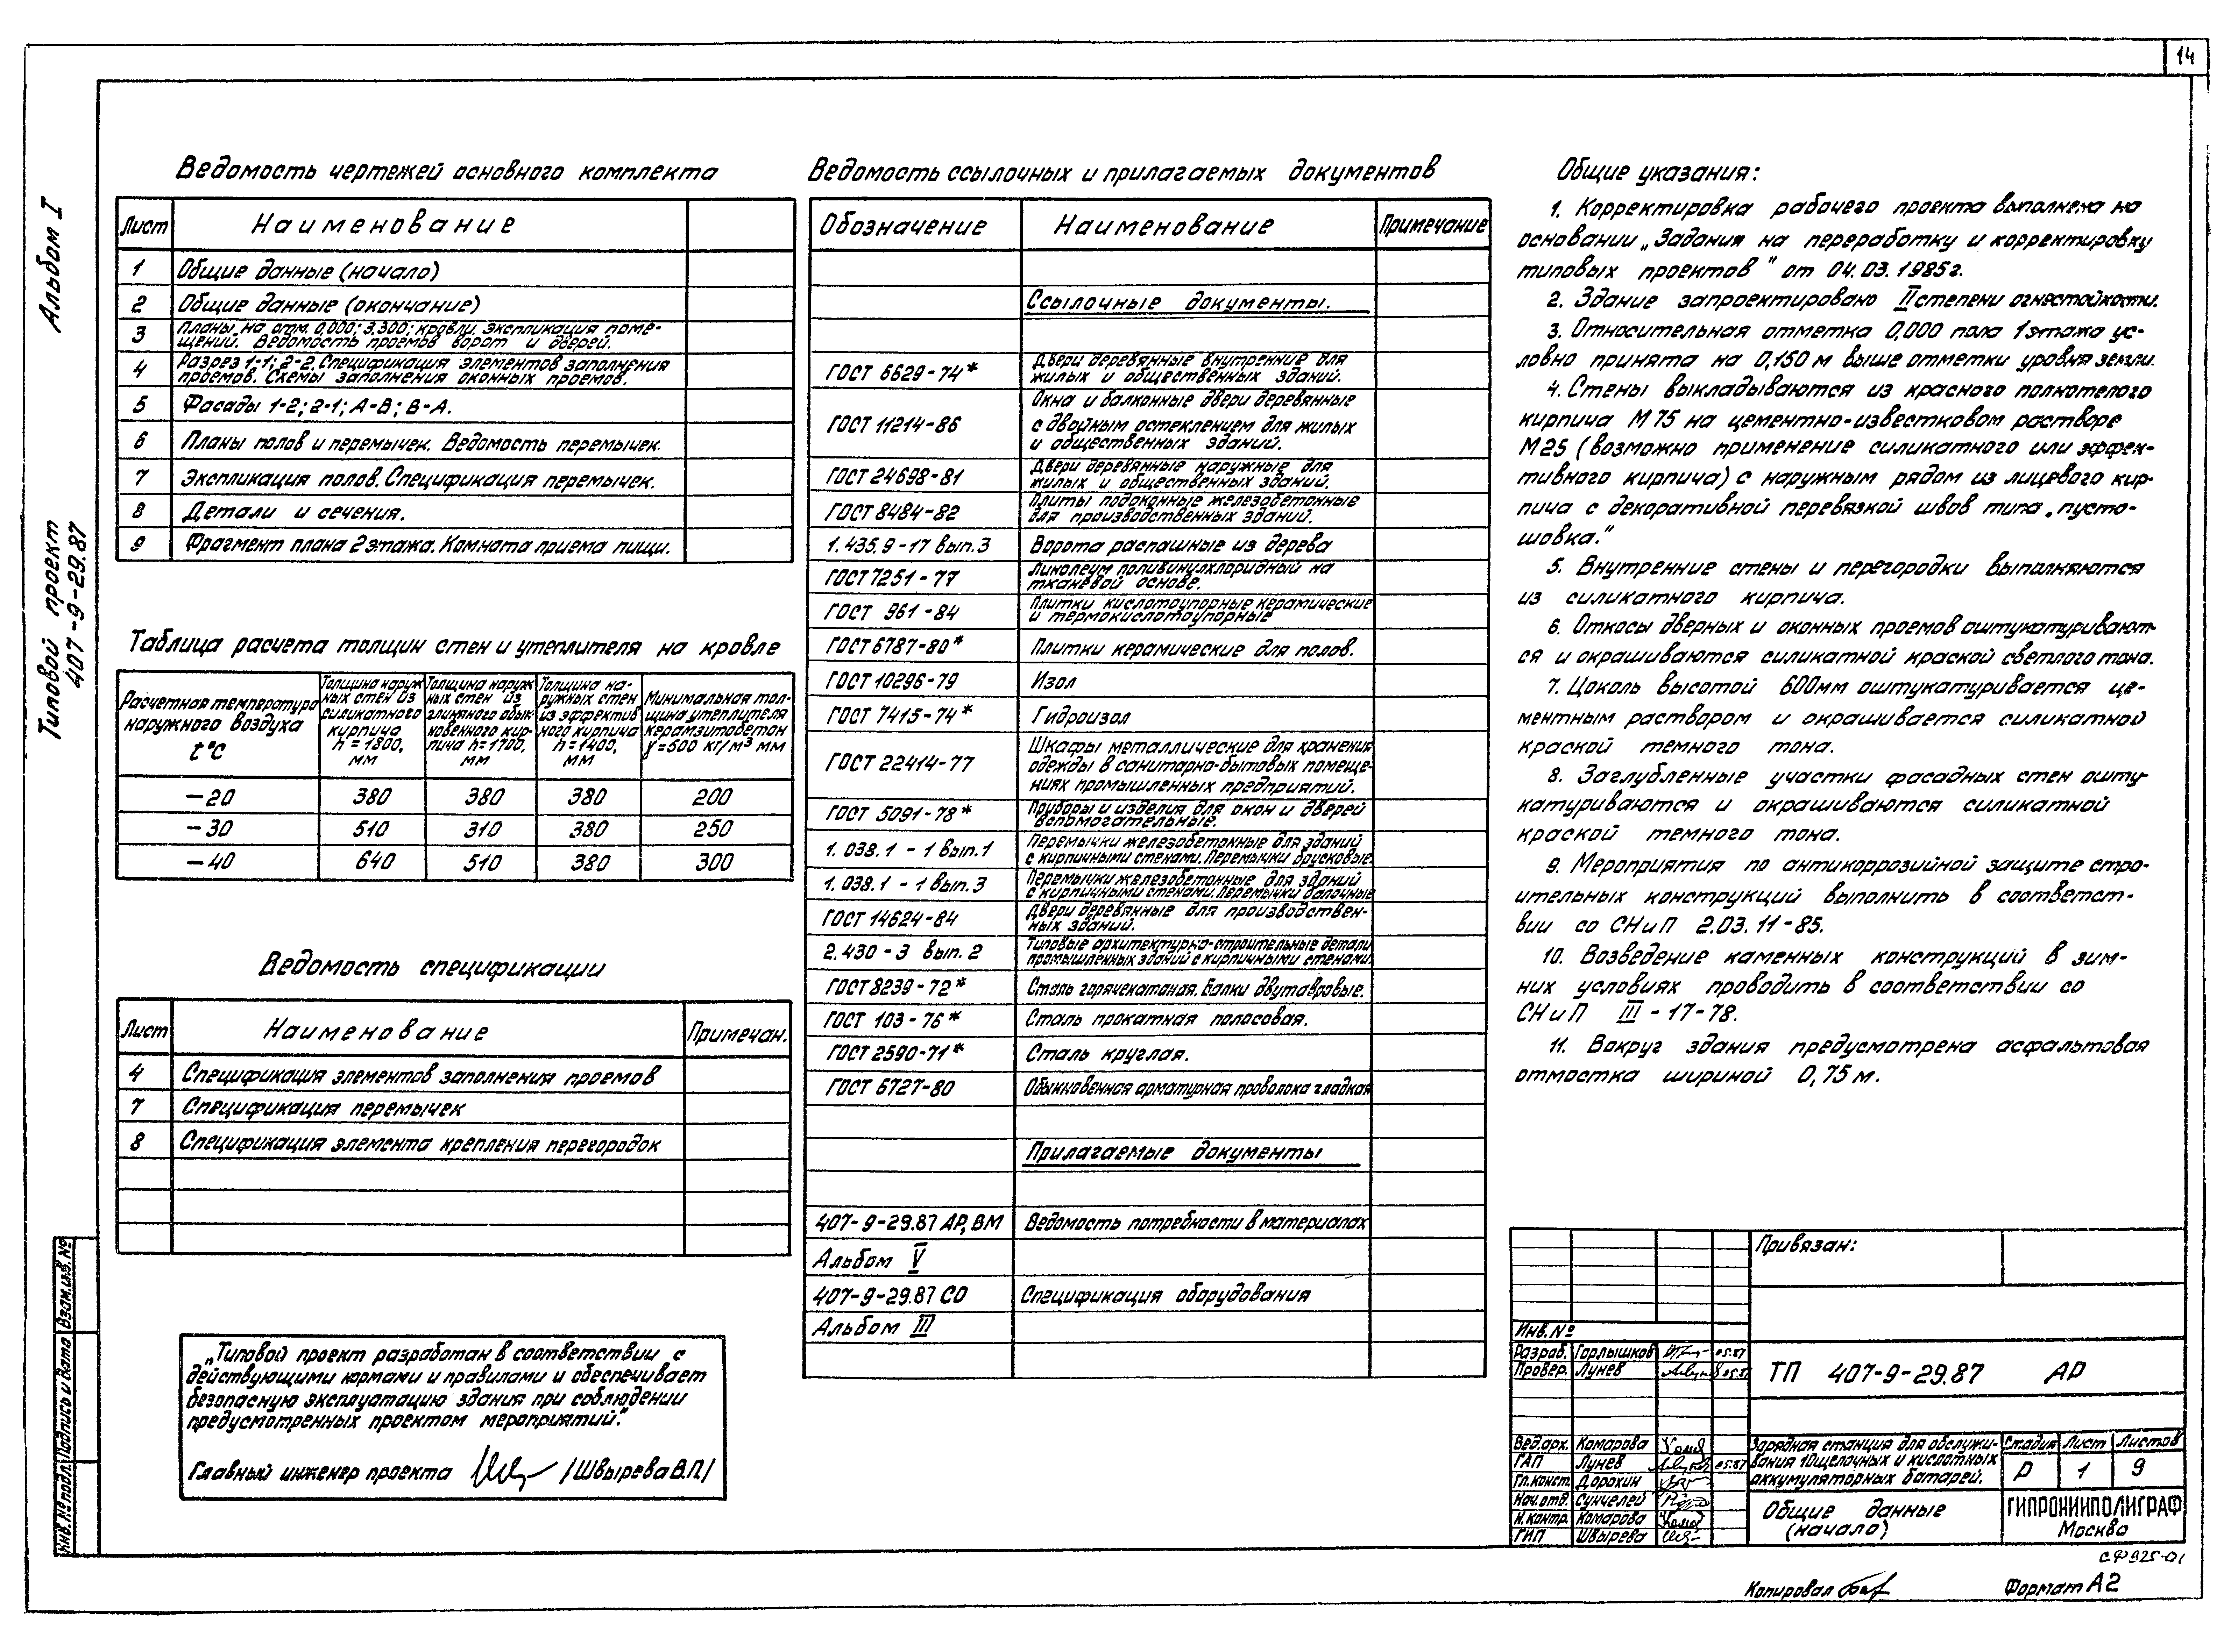 14
Альбом I
Типовой проект
407-9-29.87
Ведомость чертежей основного комплекта
Лист Наименование
1 Общие данные (начало)
2 Общие данные (окончание)
3 Планы на отм. 0,000; 3,300; кровли, экспликация поме-
щений. Ведомость проемов ворот и дверей.
4 Разрез 1-1; 2-2. Спецификация элементов заполнения
проемов. Схемы заполнения оконных проемов.
5 Фасады 1-2; 2-1; А-В; В-А.
6 Планы полов и перемычек. Ведомость перемычек.
7 Экспликация полов. Спецификация перемычек.
8 Детали и сечения.
9 Фрагмент плана 2 этажа. Комната приема пищи.
Таблица расчета толщин стен и утеплителя на кровле
Расчетная температура
наружного воздуха
t°C
Толщина наруж
ных стен из
силикатного
кирпича
h=1800,
мм
Толщина наруж
ных стен из
глиняного обык
новенного кир-
пича h=1700,
мм
Толщина на-
ружных стен
из эффектив
ного кирпича
h=1400,
мм
Минимальная тол-
щина утеплителя
керамзитобетон
γ=500 кг/м³ мм
-20 380 380 380 200
-30 510 310 380 250
-40 640 510 380 300
Ведомость спецификации
Лист Наименование Примечан.
4 Спецификация элементов заполнения проемов
7 Спецификация перемычек
8 Спецификация элемента крепления перегородок
„Типовой проект разработан в соответствии с
действующими нормами и правилами и обеспечивает
безопасную эксплуатацию здания при соблюдении
предусмотренных проектом мероприятий."
Главный инженер проекта /Швырева В.П./
Ведомость ссылочных и прилагаемых документов
Обозначение Наименование Примечание
Ссылочные документы.
ГОСТ 6629-74* Двери деревянные внутренние для
жилых и общественных зданий.
ГОСТ 11214-86 Окна и балконные двери деревянные
с двойным остеклением для жилых
и общественных зданий.
ГОСТ 24698-81 Двери деревянные наружные для
жилых и общественных зданий.
ГОСТ 8484-82 Плиты подоконные железобетонные
для производственных зданий.
1.435.9-17 вып.3 Ворота распашные из дерева
ГОСТ 7251-77 Линолеум поливинилхлоридный на
тканевой основе.
ГОСТ 961-84 Плитки кислотоупорные керамические
и термокислотоупорные
ГОСТ 6787-80* Плитки керамические для полов.
ГОСТ 10296-79 Изол
ГОСТ 7415-74* Гидроизол
ГОСТ 22414-77 Шкафы металлические для хранения
одежды в санитарно-бытовых помеще-
ниях промышленных предприятий.
ГОСТ 5091-78* Приборы и изделия для окон и дверей
вспомогательные.
1.038.1-1 вып.1 Перемычки железобетонные для зданий
с кирпичными стенами. Перемычки брусковые.
1.038.1-1 вып.3 Перемычки железобетонные для зданий
с кирпичными стенами. Перемычки балочные
ГОСТ 14624-84 Двери деревянные для производствен-
ных зданий.
2.430-3 вып.2 Типовые архитектурно-строительные детали
промышленных зданий с кирпичными стенами.
ГОСТ 8239-72* Сталь горячекатаная. Балки двутавровые.
ГОСТ 103-76* Сталь прокатная полосовая.
ГОСТ 2590-71* Сталь круглая.
ГОСТ 6727-80 Обыкновенная арматурная проволока гладкая
Прилагаемые документы
407-9-29.87 АР, ВМ Ведомость потребности в материалах
Альбом V
407-9-29.87 СО Спецификация оборудования
Альбом III
Общие указания:
1. Корректировка рабочего проекта выполнена на
основании „Задания на переработку и корректировку
типовых проектов" от 04.03.1985г.
2. Здание запроектировано II степени огнестойкости.
3. Относительная отметка 0,000 пола 1 этажа ус-
ловно принята на 0,150 м выше отметки уровня земли.
4. Стены выкладываются из красного полнотелого
кирпича М75 на цементно-известковом растворе
М25 (возможно применение силикатного или эффек-
тивного кирпича) с наружным рядом из лицевого кир-
пича с декоративной перевязкой швов типа „пусто-
шовка."
5. Внутренние стены и перегородки выполняются
из силикатного кирпича.
6. Откосы дверных и оконных проемов оштукатуривают-
ся и окрашиваются силикатной краской светлого тона.
7. Цоколь высотой 600мм оштукатуривается це-
ментным раствором и окрашивается силикатной
краской темного тона.
8. Заглубленные участки фасадных стен ошту-
катуриваются и окрашиваются силикатной
краской темного тона.
9. Мероприятия по антикоррозийной защите стро-
ительных конструкций выполнить в соответст-
вии со СНиП 2.03.11-85.
10. Возведение каменных конструкций в зим-
них условиях проводить в соответствии со
СНиП III-17-78.
11. Вокруг здания предусмотрена асфальтовая
отмостка шириной 0,75 м.
Привязан:
Инв.№
Разраб. Горлышков 05.87
Провер. Лунев 05.87
ТП 407-9-29.87 АР
Вед.арх. Комарова
ГАП Лунев 05.87
Гл.конст. Дорохин
Нач.отд. Сунчелей
Н.контр. Комарова
ГИП Швырева
Зарядная станция для обслужи-
вания 10 щелочных и кислотных
аккумуляторных батарей.
Стадия Лист Листов
Р 1 9
Общие данные
(начало)
ГИПРОНИИПОЛИГРАФ
Москва
Инв.№ подл. Подпись и дата Взам.инв.№
СФ 925-01
Копировал Формат А2